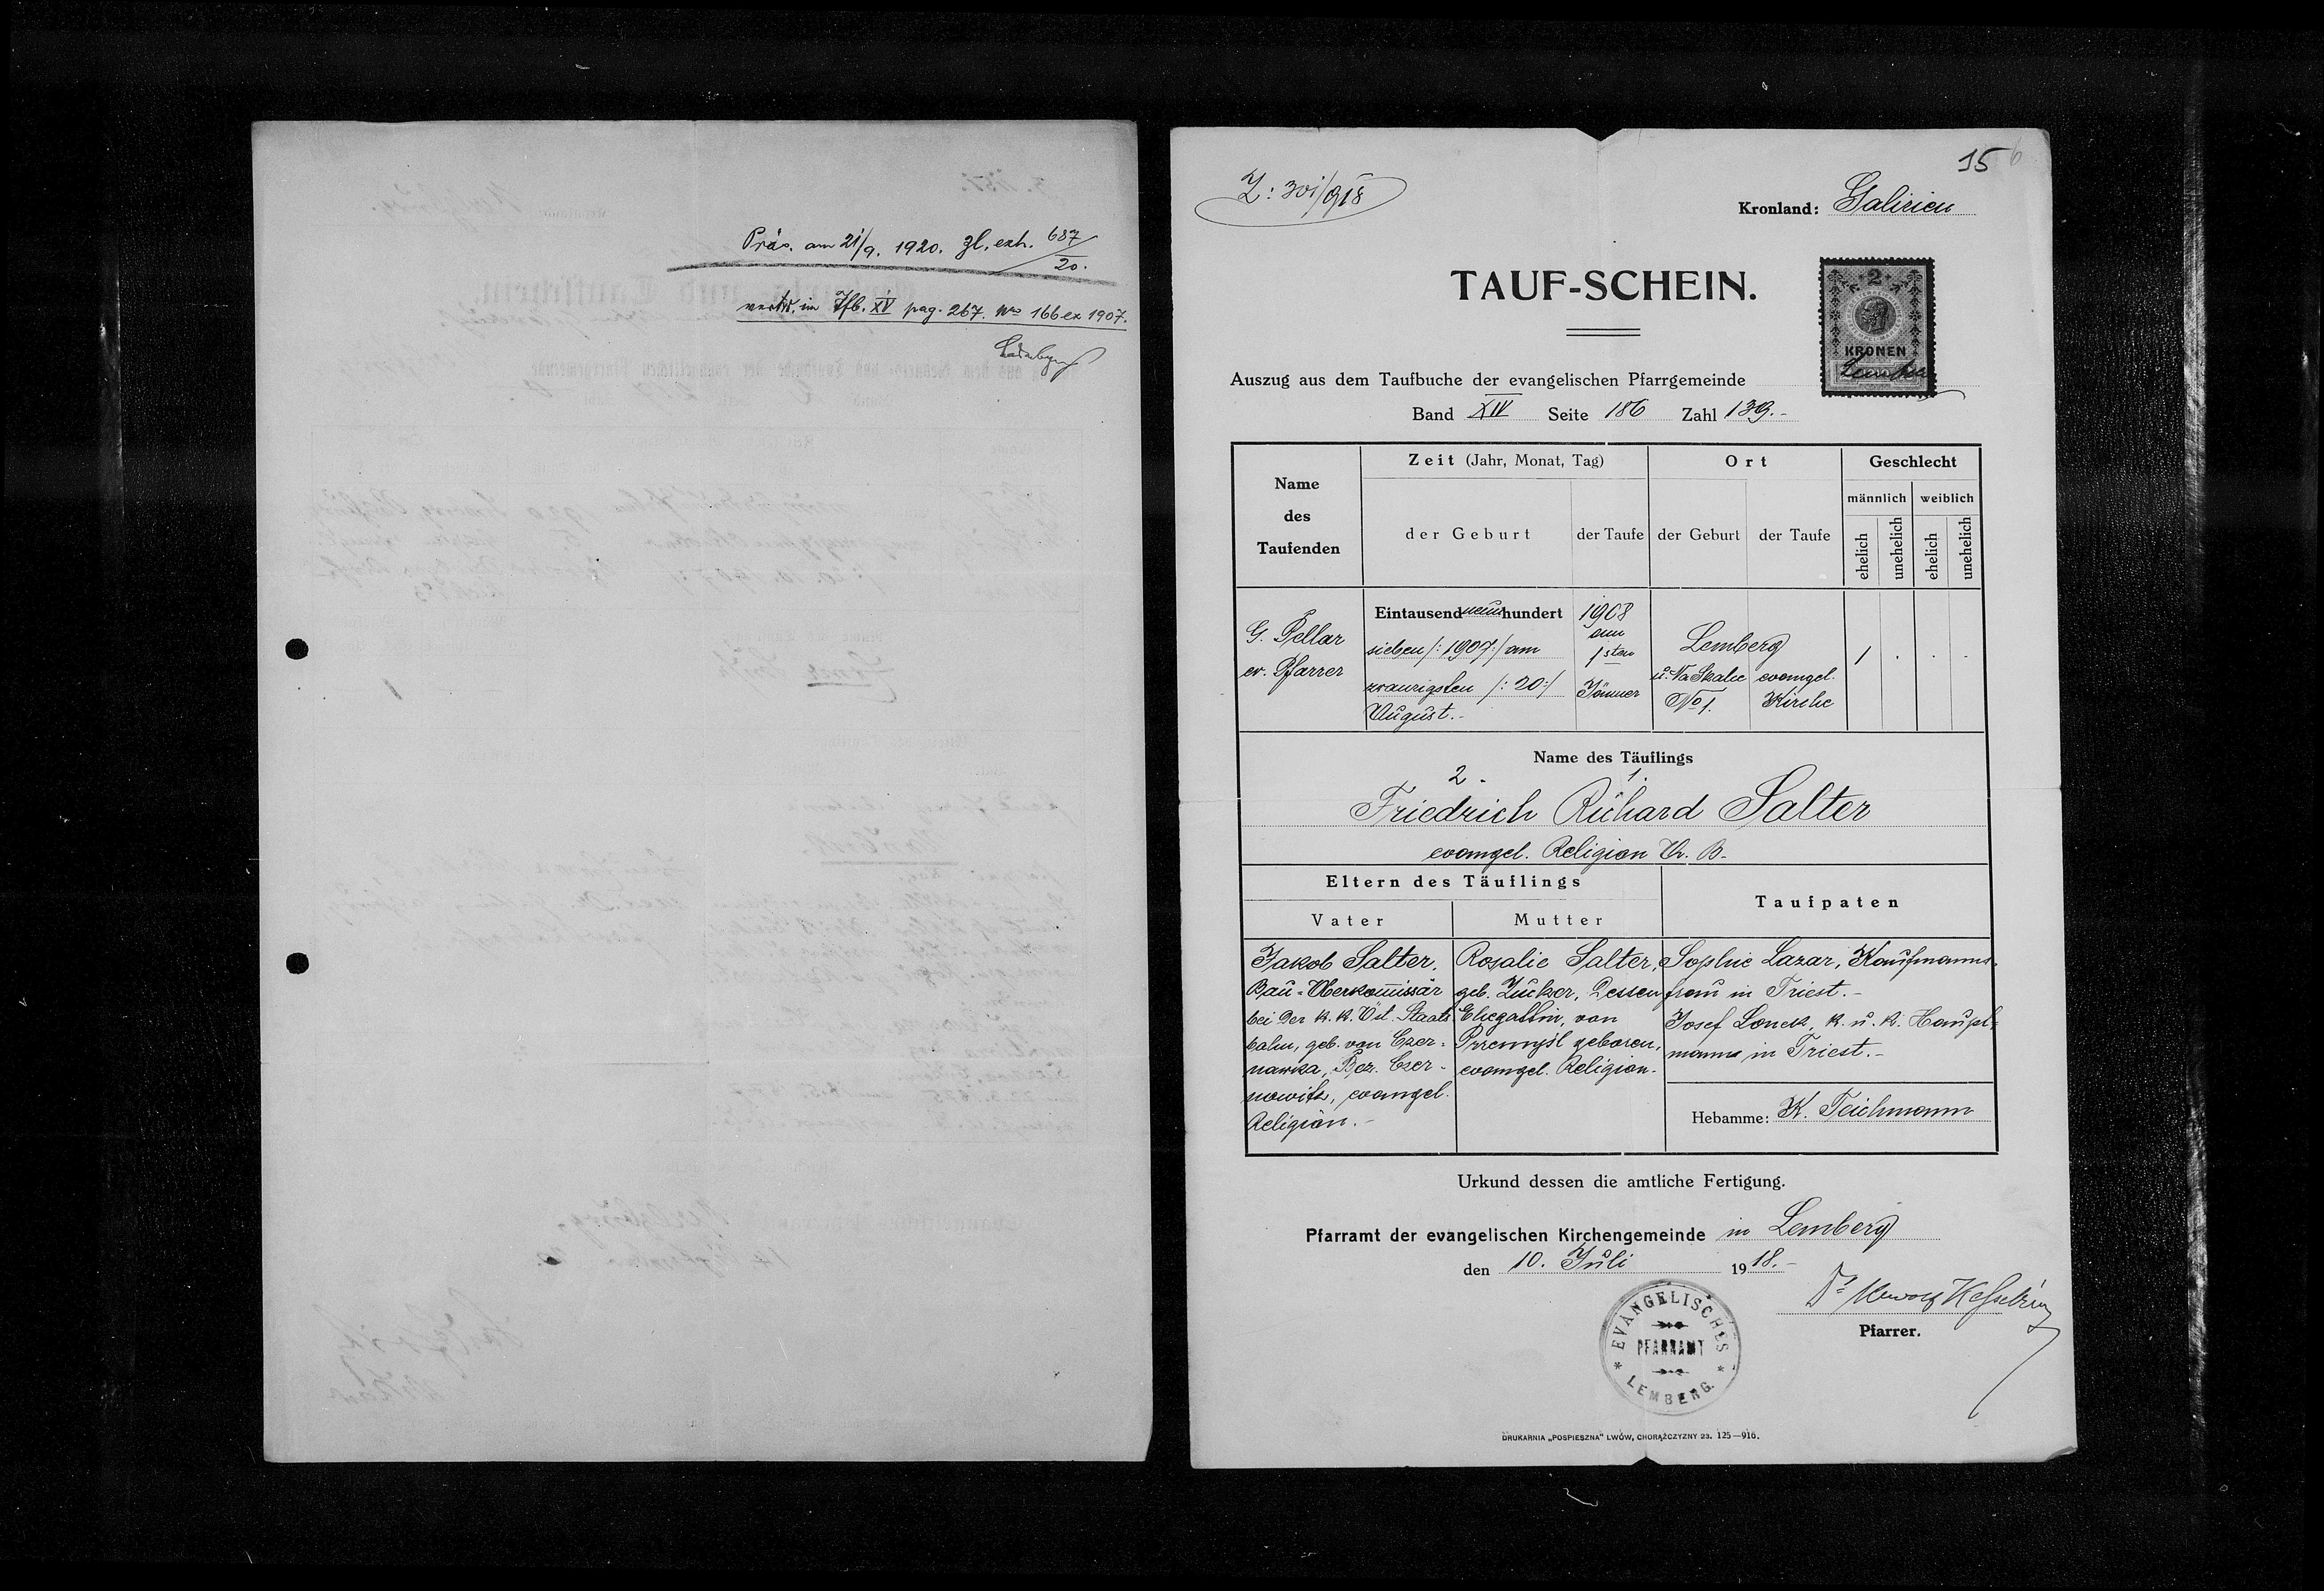 Präs. am 21/9. 1920. Zl. exh. 687/20.
im Tfb. XIV pag. 267. No 166 ex 1907.
15 6
Z: 301/918
Kronland: Galizien
TAUF-SCHEIN.
2
KRONEN
Lemberg
Auszug aus dem Taufbuche der evangelischen Pfarrgemeinde
Band XIV Seite 186 Zahl 139.-
Name des Taufenden
Zeit (Jahr, Monat, Tag)
Ort
Geschlecht
der Geburt
der Taufe
der Geburt
der Taufe
männlich
weiblich
ehelich
unehelich
ehelich
unehelich
G. Pellar
ev. Pfarrer
Eintausend neun hundert
sieben /: 1907 :/ am
zwanzigsten /: 20 :/
August.-
1908
am
1sten
Jänner
Lemberg
u. Na Skalce
No 1.
evangel.
Kirche
1 . . .
Name des Täuflings
2. 1.
Friedrich Richard Salter
evangel. Religion A. B.
Eltern des Täuflings
Taufpaten
Vater
Mutter
Jakob Salter,
Bau-Oberkommissär
bei der k. k. Öst. Staats
bahn, geb. von Czer-
nawka, Bez. Czer-
nowitz, evangel.
Religion.-
Rosalie Salter,
geb. Zucker, dessen
Ehegattin, von
Przemysl geboren,
evangel. Religion.
Sophie Lazar, Kaufmanns-
frau in Triest.-
Josef Lonek, k. u. k. Haupt-
mann in Triest.-
Hebamme: K. Teichmann
Urkund dessen die amtliche Fertigung.
Pfarramt der evangelischen Kirchengemeinde in Lemberg
den 10. Juli 1918.-
Dr Kesselring
Pfarrer.
EVANGELISCHES
PFARRAMT
* LEMBERG. *
DRUKARNIA „POSPIESZNA" LWÓW, CHORĄŻCZYZNY 23. 125—916.